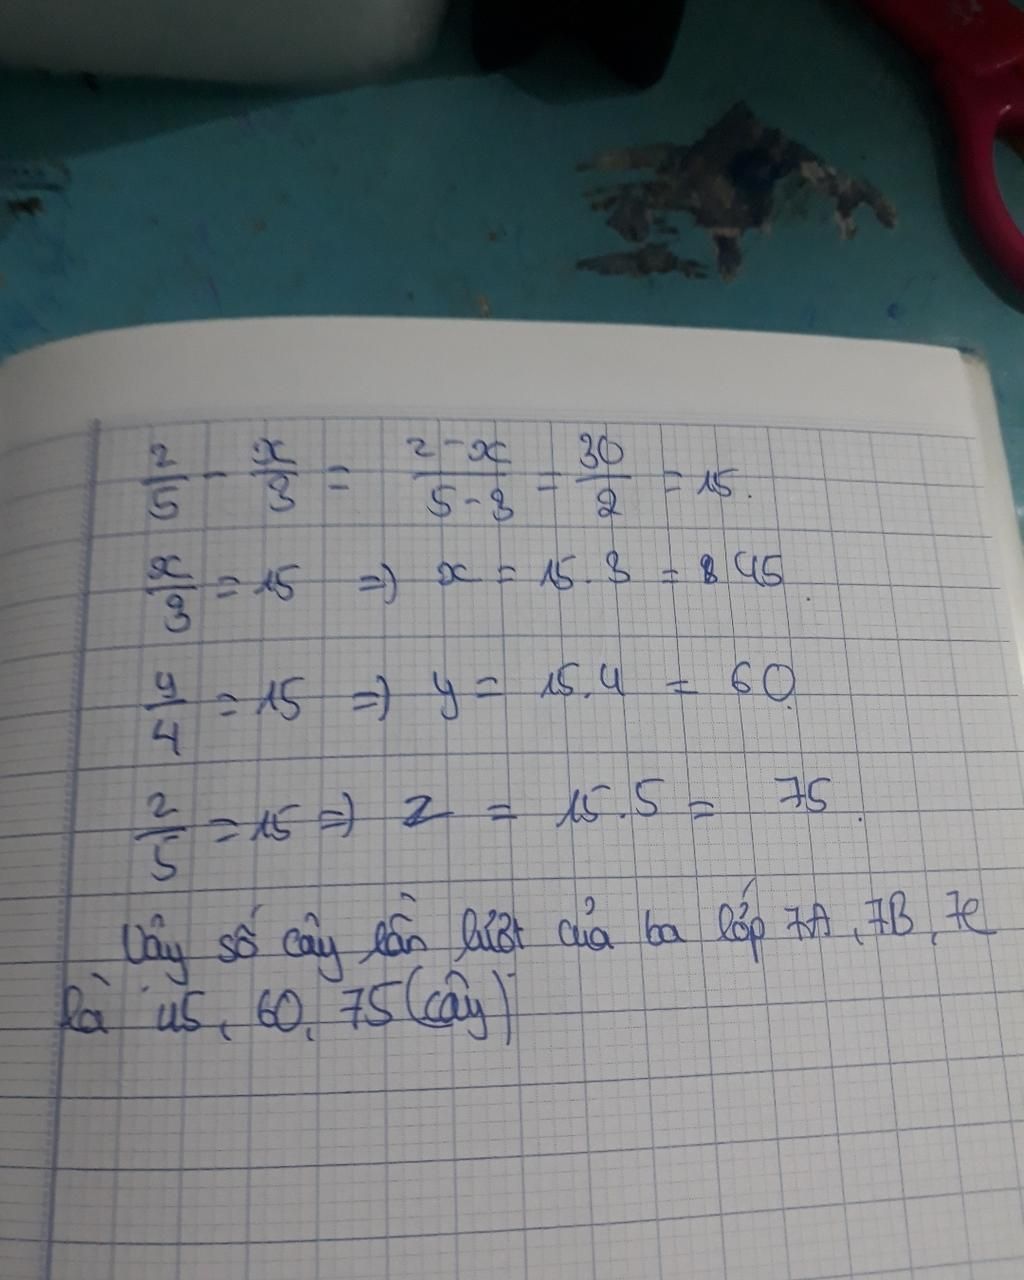 z/5 - x/3 = z-x/5-3 = 30/2 = 15.
x/3 = 15 => x = 15.3 = 45
y/4 = 15 => y = 15.4 = 60
z/5 = 15 => z = 15.5 = 75.
Vậy số cây lần lượt của ba lớp 7A, 7B, 7C
là 45, 60, 75 (cây)